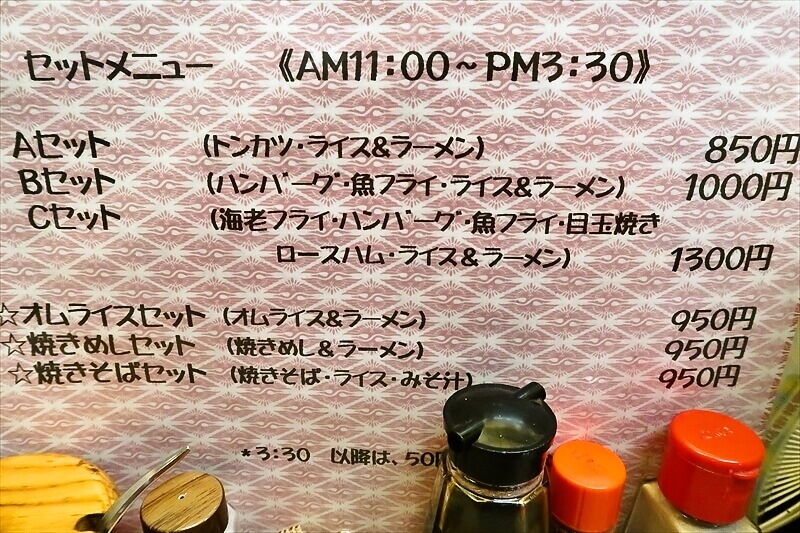 セットメニュー 《AM11:00～PM3:30》
Aセット (トンカツ・ライス&ラーメン) 850円
Bセット (ハンバーグ・魚フライ・ライス&ラーメン) 1000円
Cセット (海老フライ・ハンバーグ・魚フライ・目玉焼き
ロースハム・ライス&ラーメン) 1300円
☆オムライスセット (オムライス&ラーメン) 950円
☆焼きめしセット (焼きめし&ラーメン) 950円
☆焼きそばセット (焼きそば・ライス・みそ汁) 950円
*3:30 以降は、50円